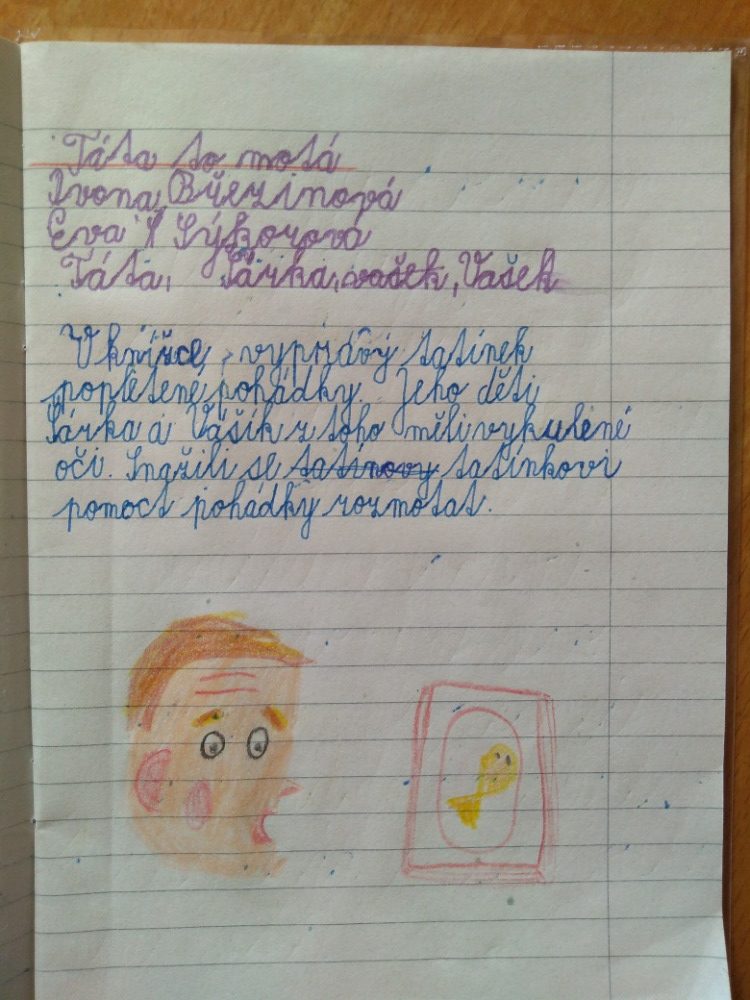 Táta to motá
Ivona Březinová
Eva Sýkorová
Táta, Šárka, vašek, Vašek
V knížce, vyprávý tatínek
popletené pohádky. Jeho děti
Šárka a Vašík z toho měli vykulené
oči. Snažili se tatínovy tatínkovi
pomoct pohádky rozmotat.